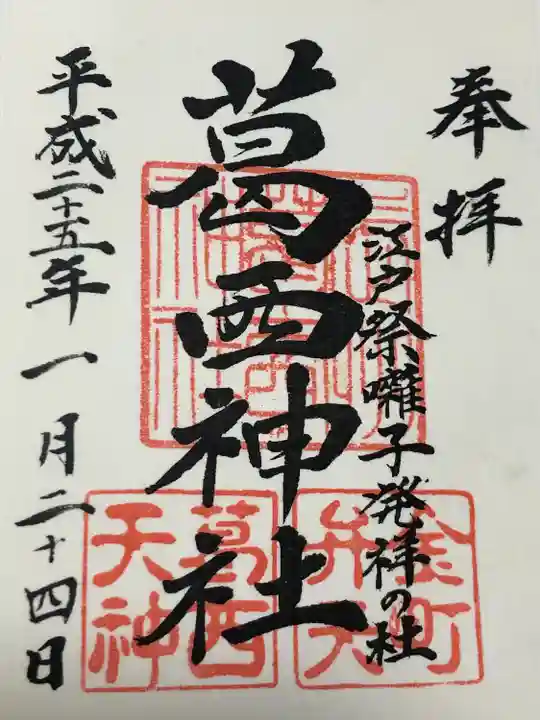 奉拝
江戸祭囃子発祥の社
葛西神社
平成二十五年一月二十四日
金町
弁天
葛西
天神